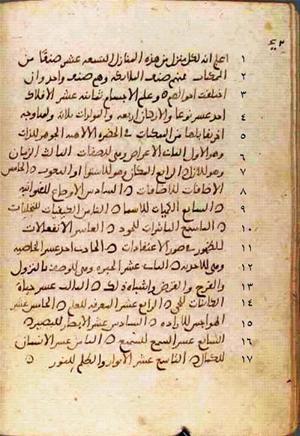 ١ اعلم انه لكل منزل من هذه المنازل التسعة عشر صنفا من
٢ الممكنات فمنهم صنف الملائكة وهم صنف واحد وان
٣ اختلفت احوالهم وعلم الاجسام ثمانية عشر الافلاك
٤ احد عشر نوعا والاركان اربعة والمولدات ثلاثة ولها وجه
٥ آخر يقابلها من الممكنات في الحضرة الالهية الجوهر للذات
٦ وهو الاول الثاني الاعراض وهي للصفات الثالث الزمان
٧ وهو للازل الرابع المكان وهو للاستواء او النعوت ٥ الخامس
٨ الاضافات للاضافات ٥ السادس الاوضاع للفهوانية
٩ ٥ السابع الكميات للاسماء ٥ الثامن الكيفيات للتجليات
١٠ ٥ التاسع التاثيرات للجود ٥ العاشر الانفعالات
١١ للظهور في صور الاعتقادات ٥ الحادي عشر الخاصية
١٢ وهي للاحدية ٥ الثاني عشر الحيرة وهي للوصف بالنزول
١٣ والفرح والقرض واشباه ذلك ٥ الثالث عشر حياة
١٤ الكائنات للحي ٥ الرابع عشر المعرفة للعلم ٥ الخامس عشر
١٥ الهواجس للارادة ٥ السادس عشر الابصار للبصير ٥
١٦ السابع عشر السمع للسميع ٥ الثامن عشر الانسان
١٧ للكمال ٥ التاسع عشر الانوار والظلم للنور ٥